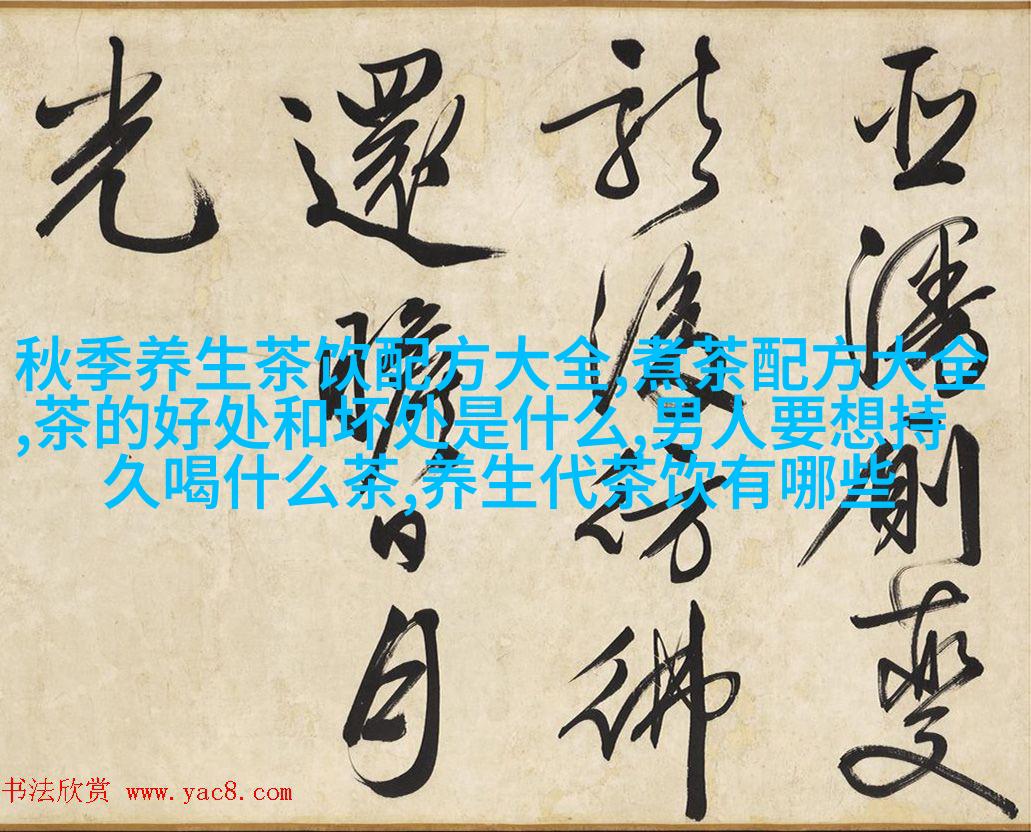 變
彷彿
還瞻日月
光
秋季养生茶饮配方大全,煮茶配方大全
,茶的好处和坏处是什么,男人要想持
久喝什么茶,养生代茶饮有哪些
书法欣赏 www.yac8.com